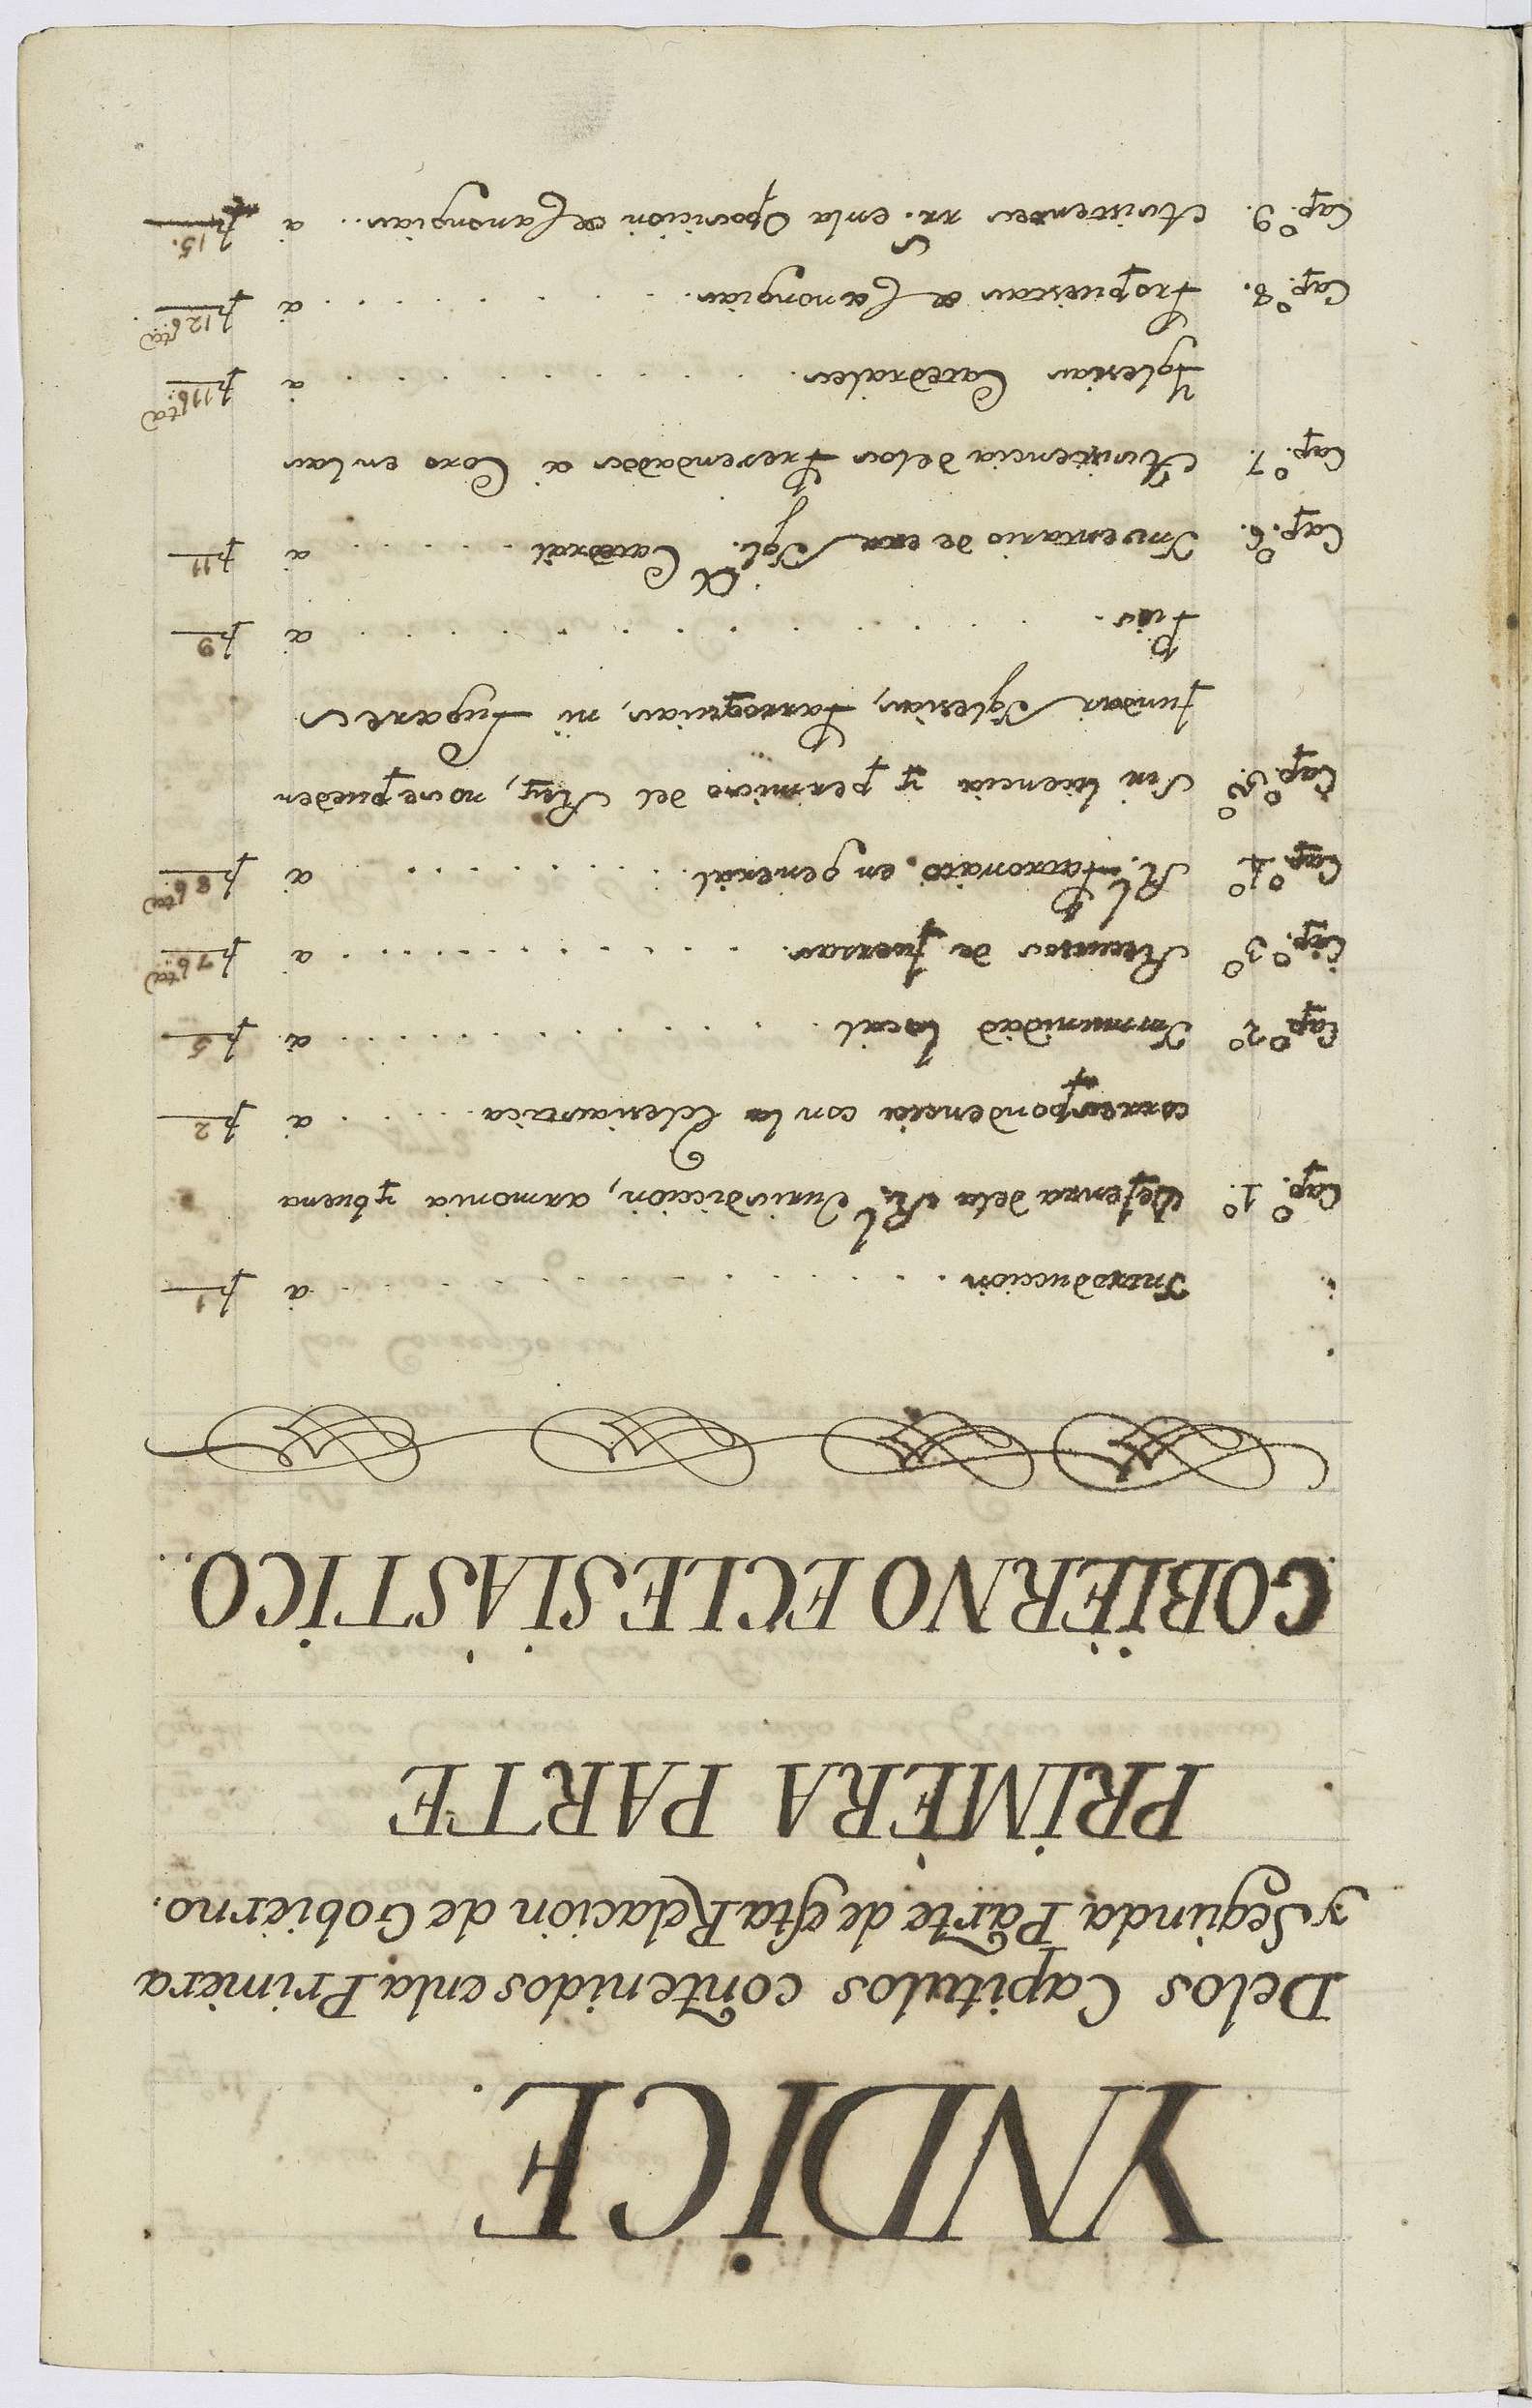 YNDICE.
Delos Capitulos contenidos enla Primera
y Segunda Parte de esta Relacion de Gobierno.
PRIMERA PARTE
GOBIERNO ECLESIASTICO.
Introduccion . . . . . . . . . . a f 1
Cap.º 1º. Defensa dela Rl. Jurisdiccion, armonia y buena
correspondencia con la Eclesiastica . . . . a f 2
Cap.º 2º Inmunidad local . . . . . . . . . a f 5
Cap.º 3º Recursos de fuersas. . . . . . . . . . . a f 7 bta
Cap.º 4º Rl. Patronato en general. . . . . . . . a f 8 bta
Cap.º 5º. Sin licencia y permiso del Rey, nose pueden
fundar Iglesias, Parroquias, ni Lugares
Pios. . . . . . . . . . . . . a f 9
Cap.º 6. Inventario de esta Igl.ª Catedral . . . . . a f 11
Cap.º 7. Asistencia delos Presendados a Coro en las
Yglesias Catedrales. . . . . . . . . a f 11 bta
Cap.º 8. Propuestas de Canongias. . . . . . . . . a f 12 bta
Cap.º 9. Asistentes rs. enla Oposicion de Canongias . . a f 15.